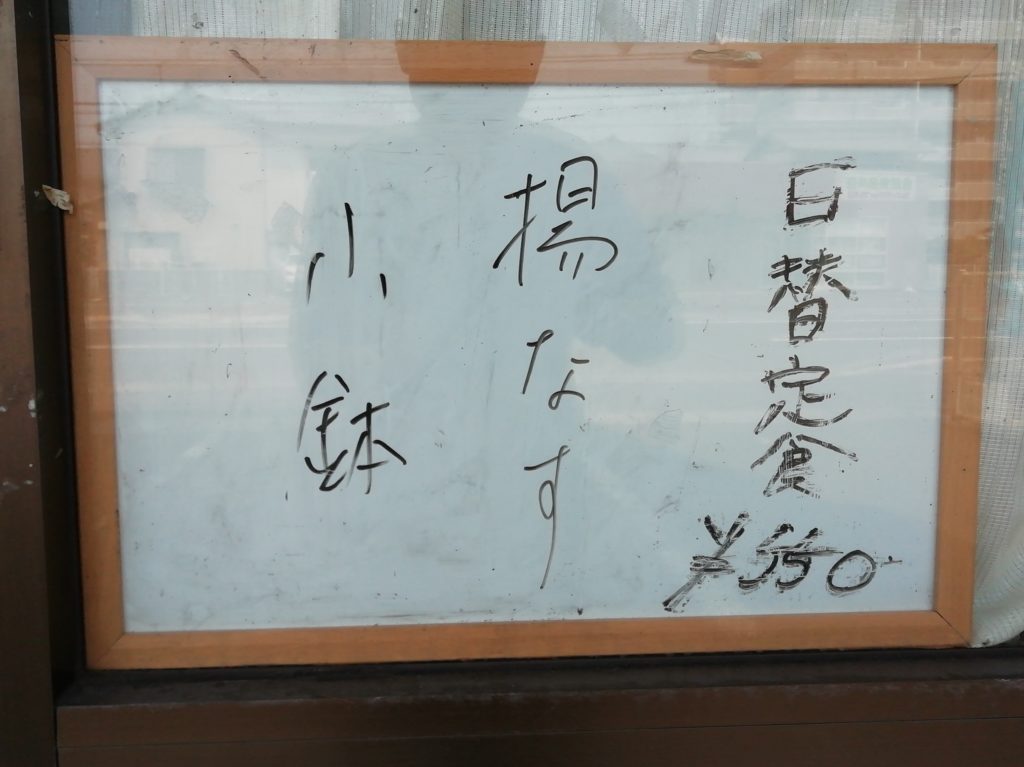 日替定食
¥550
揚なす
小鉢